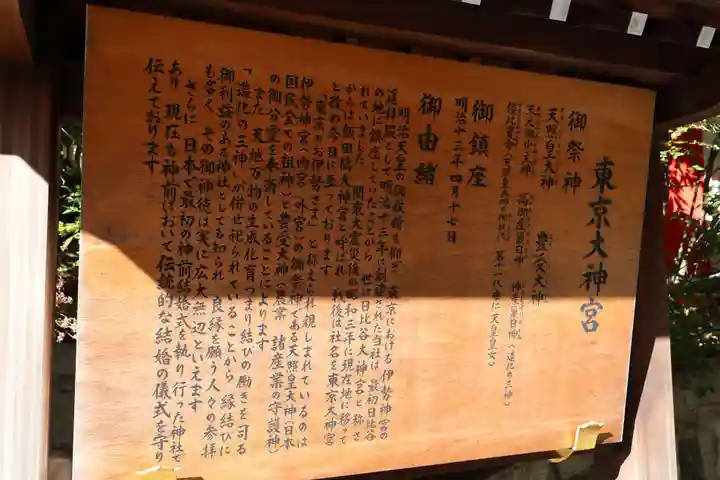 東京大神宮
御祭神
天照皇大神　豊受大神
天之御中主神　高御産巣日神　神産巣日神（造化の三神）
倭比賣命（天照皇大神の御杖代　第十一代垂仁天皇皇女）
御鎮座
明治十三年四月十七日
御由緒
明治天皇の御裁断を仰ぎ　東京における伊勢神宮の
遥拝殿として明治十三年に創建された当社は　最初日比谷
の地に鎮座していたことから　世に日比谷大神宮と称さ
れていました　関東大震災後の昭和三年に現在地に移って
からは飯田橋大神宮と呼ばれ　戦後は社名を東京大神宮
と改め今日に至っております
「東京のお伊勢さま」と称えられ親しまれているのは
伊勢神宮の内宮・外宮の御祭神である天照皇大神（日本
国民全ての祖神）と豊受大神（農業　諸産業の守護神）
の御分霊を奉斎していることによります
また　天地万物の生成化育つまり結びの働きを司る
「造化の三神」が併せ祀られていることから　縁結びに
御利益のある神社としても知られ　良縁を願う人々の参拝
も多く　その御神徳は実に広大無辺といえます
さらに　日本で最初の神前結婚式を執り行った神社で
あり　現在も神前において伝統的な結婚の儀式を守り
伝えております